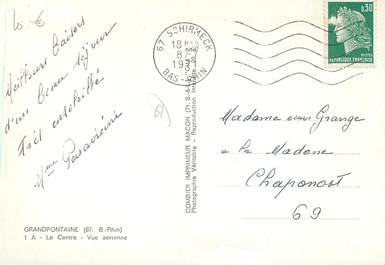 10 €
Meilleurs baisers
d'un beau séjour
Très ensoleillé
Mme
67 SCHIRMECK
18 H
BAS-RHIN
0,30
REPUBLIQUE FRANCAISE
POSTES
67
COMBIER IMPRIMEUR MACON (71. S.-
Photographie Véritable - Reproduction Interdite
Madame Grange
à la Madone
Chaponost
69
GRANDFONTAINE (67. B.-Rhin)
1 A - Le Centre - Vue aérienne